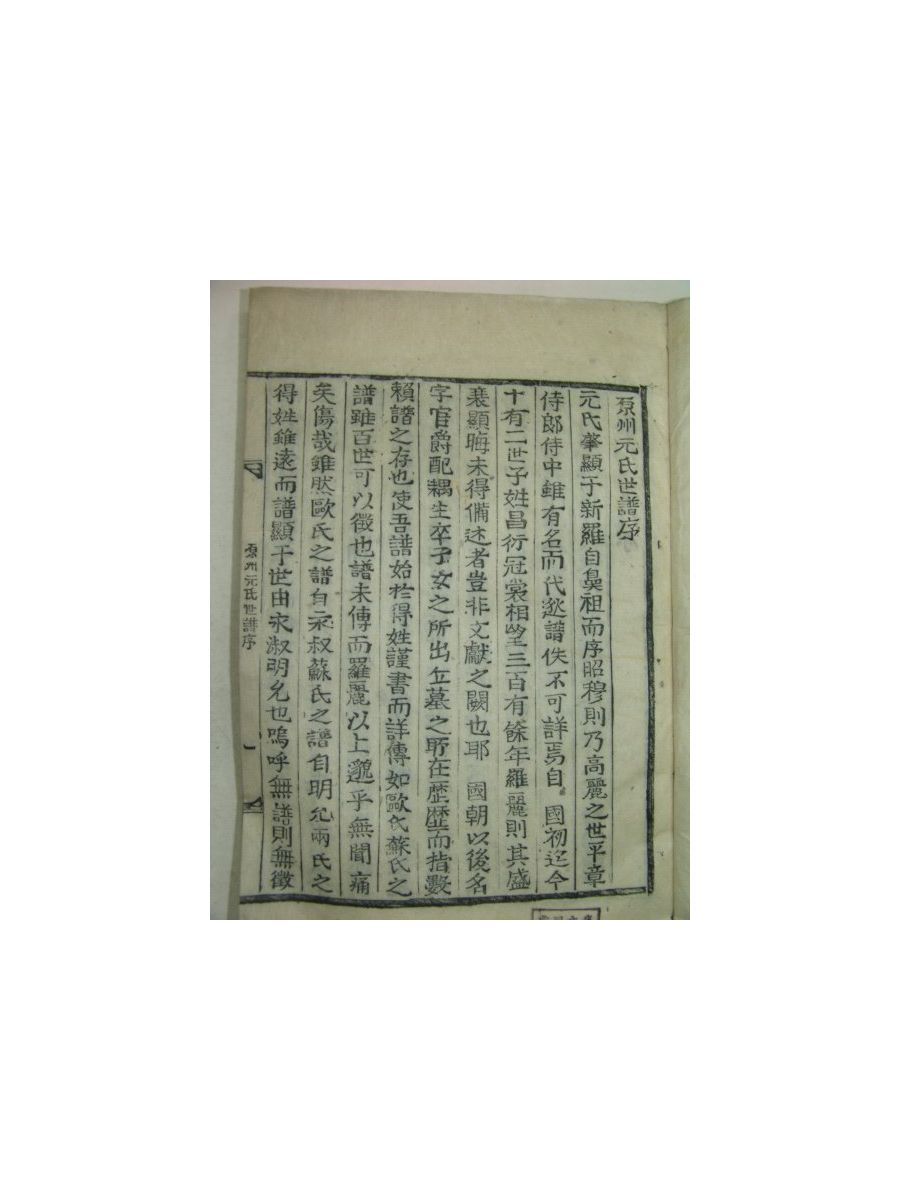 原州元氏世譜序
元氏肇顯于新羅自鼻祖而序昭穆則乃高麗之世平章
侍郞侍中雖有名而代逖譜佚不可詳焉自 國初迄今
十有二世子姓昌衍冠裳相望三百有餘年羅麗則其盛
衰顯晦未得備述者豈非文獻之闕也耶 國朝以後名
字官爵配耦生卒子女之所出丘墓之所在歷歷而指數
賴譜之存也使吾譜始於得姓謹書而詳傳如歐氏蘇氏之
譜雖百世可以徵也譜未傳而羅麗以上邈乎無聞痛
矣傷哉雖然歐氏之譜自永叔蘇氏之譜自明允兩氏之
得姓雖遠而譜顯于世由永淑明允也嗚呼無譜則無徵
原州元氏世譜序
一